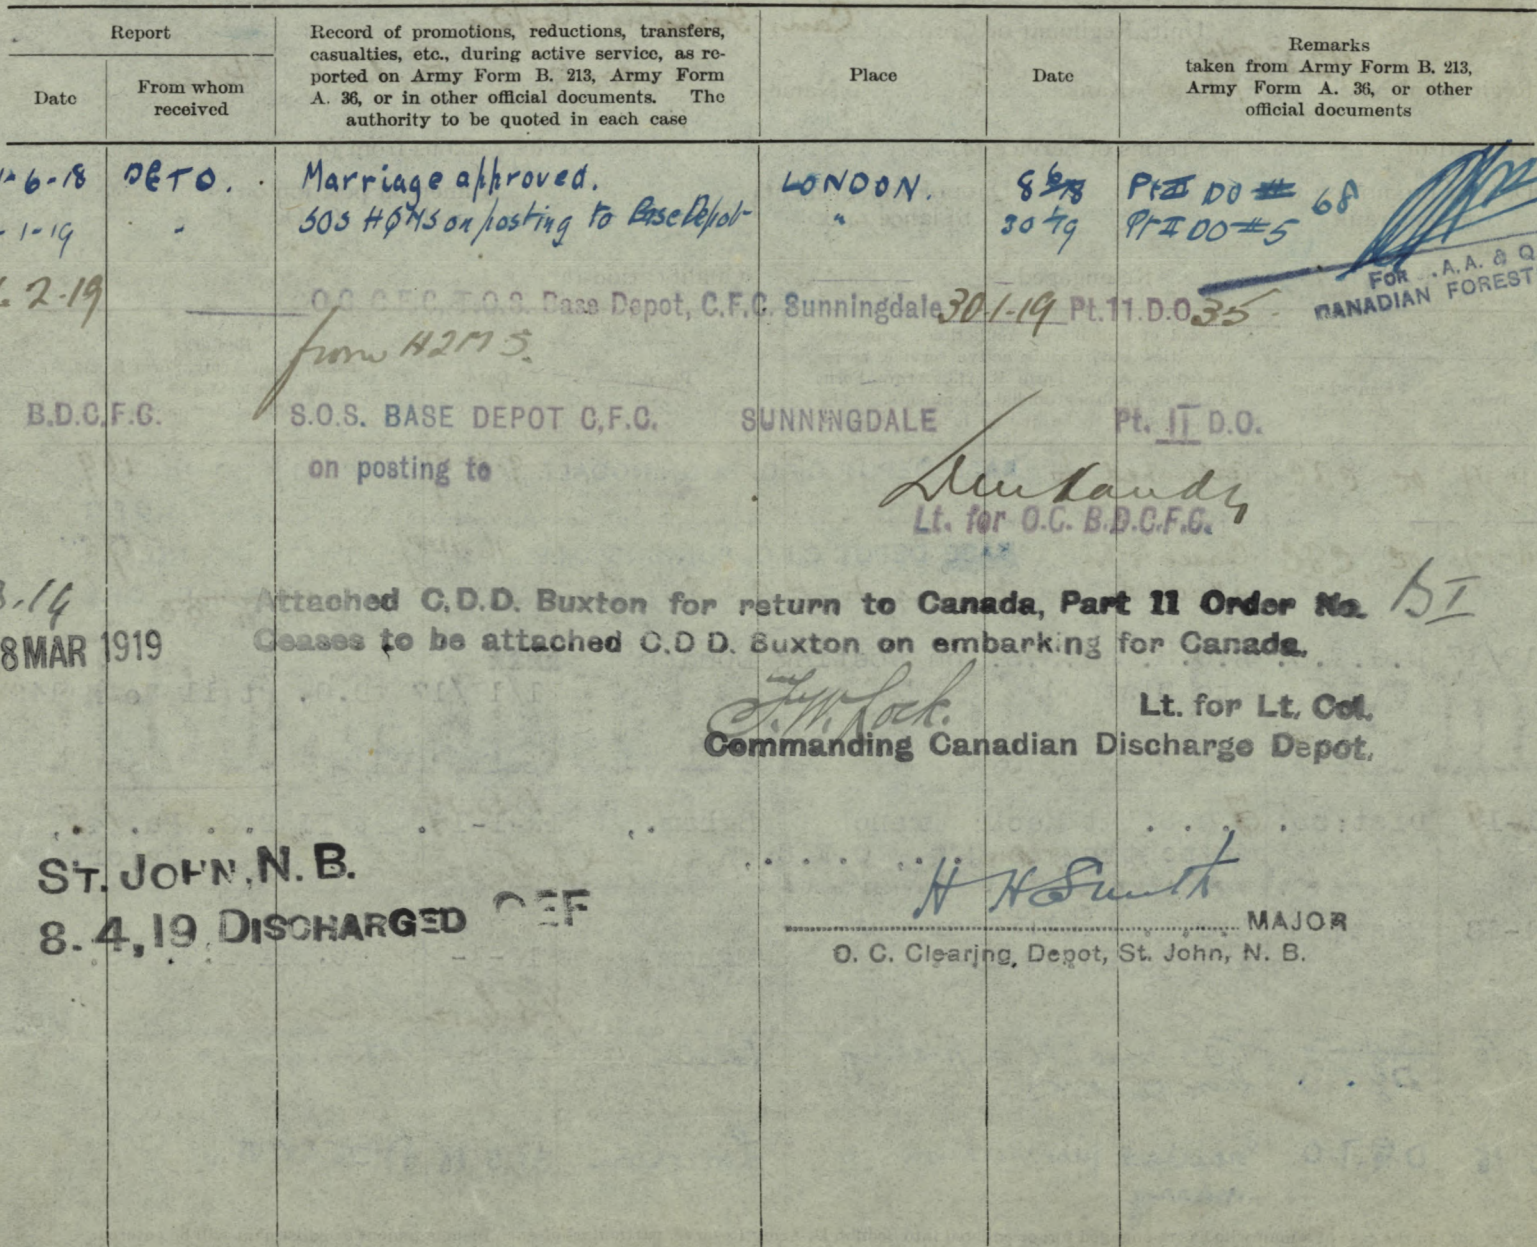 Report
Date
From whom
received
Record of promotions, reductions, transfers,
casualties, etc., during active service, as re-
ported on Army Form B. 213, Army Form
A. 36, or in other official documents. The
authority to be quoted in each case
Place
Date
Remarks
taken from Army Form B. 213,
Army Form A. 36, or other
official documents
-6-18 DETO. Marriage approved. LONDON. 8 6/18 Pt II DO # 68
-1-19 " SOS HQMS on posting to Base Depot " 30 1/19 Pt II DO #5
FOR A.A. & Q
CANADIAN FOREST
2-19 O.C. C.F.C. T.O.S. Base Depot, C.F.C. Sunningdale 30-1-19 Pt.11.D.O 35
from
B.D.C.F.C. S.O.S. BASE DEPOT C.F.C. SUNNINGDALE Pt. II D.O.
on posting to
Lt. for O.C. B.D.C.F.C.
Attached C.D.D. Buxton for return to Canada, Part 11 Order No.
8 MAR 1919 Ceases to be attached C.D D. Buxton on embarking for Canada.
Lt. for Lt. Col.
Commanding Canadian Discharge Depot.
ST. JOHN, N. B.
8.4,19 DISCHARGED CEF
H H Smith MAJOR
O. C. Clearing Depot, St. John, N. B.